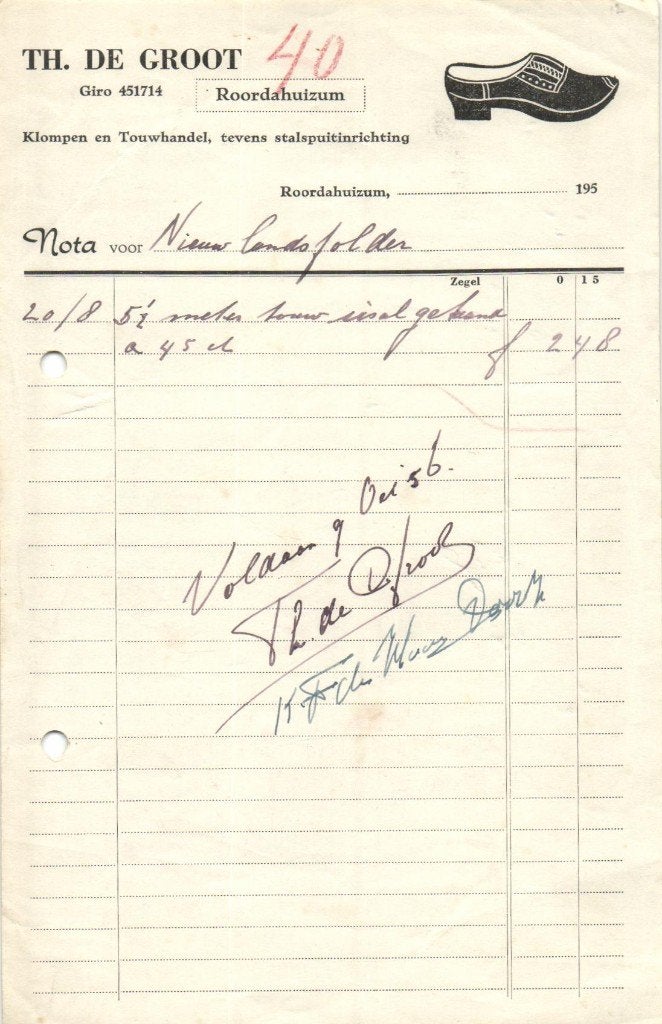 40
TH. DE GROOT
Giro 451714
Roordahuizum
Klompen en Touwhandel, tevens stalspuitinrichting
Roordahuizum, 195
Nota voor Nieuwlandspolder
Zegel 0 15
20/8 5½ meter touw sisal geteerd
a 45 ct f 2 48
Voldaan 9 Oct '56.
Th. de Groot